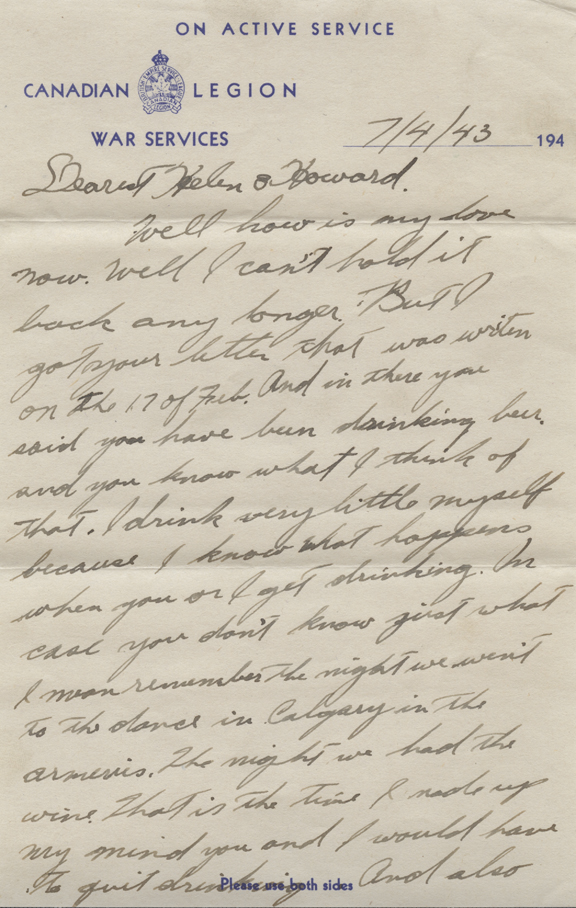 ON ACTIVE SERVICE
CANADIAN LEGION
WAR SERVICES
7/4/43 194
Dearest Helen & Howard.
Well how is my love
now. Well I can't hold it
back any longer. But I
got your letter that was writen
on the 17 of Feb. And in there you
said you have been drinking beer.
and you know what I think of
that. I drink very little myself
because I know what happens
when you or I get drinking. In
case you don't know just what
I mean remember the night we went
to the dance in Calgary in the
armeris. The night we had the
wine. That is the time I made up
my mind you and I would have
to quit drinking. And also
Please use both sides